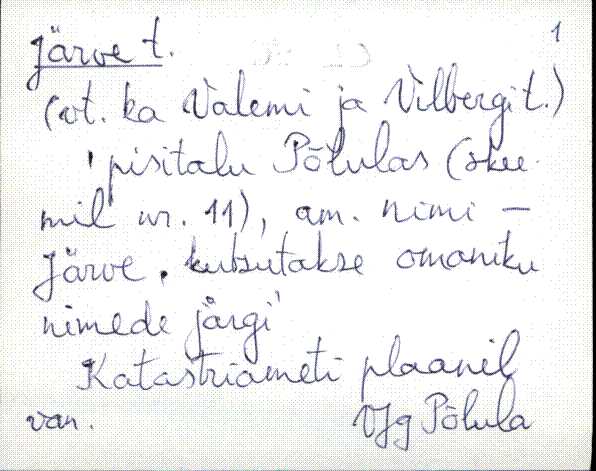 Järve t. 1
(vt. ka Valemi ja Vilbergi t.)
'pisitalu Põlulas (skee-
mil nr. 11), am. nimi –
Järve, kutsutakse omaniku
nimede järgi'
Katastriameti plaanil
van. VJg Põlula